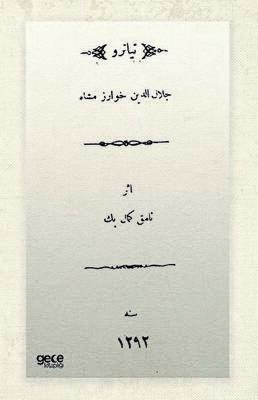 تیاترو
جلال الدین خوارز مشاه
اثر
نامق کمال بك
سنه
۱۲۹۲
gece
kitaplığı